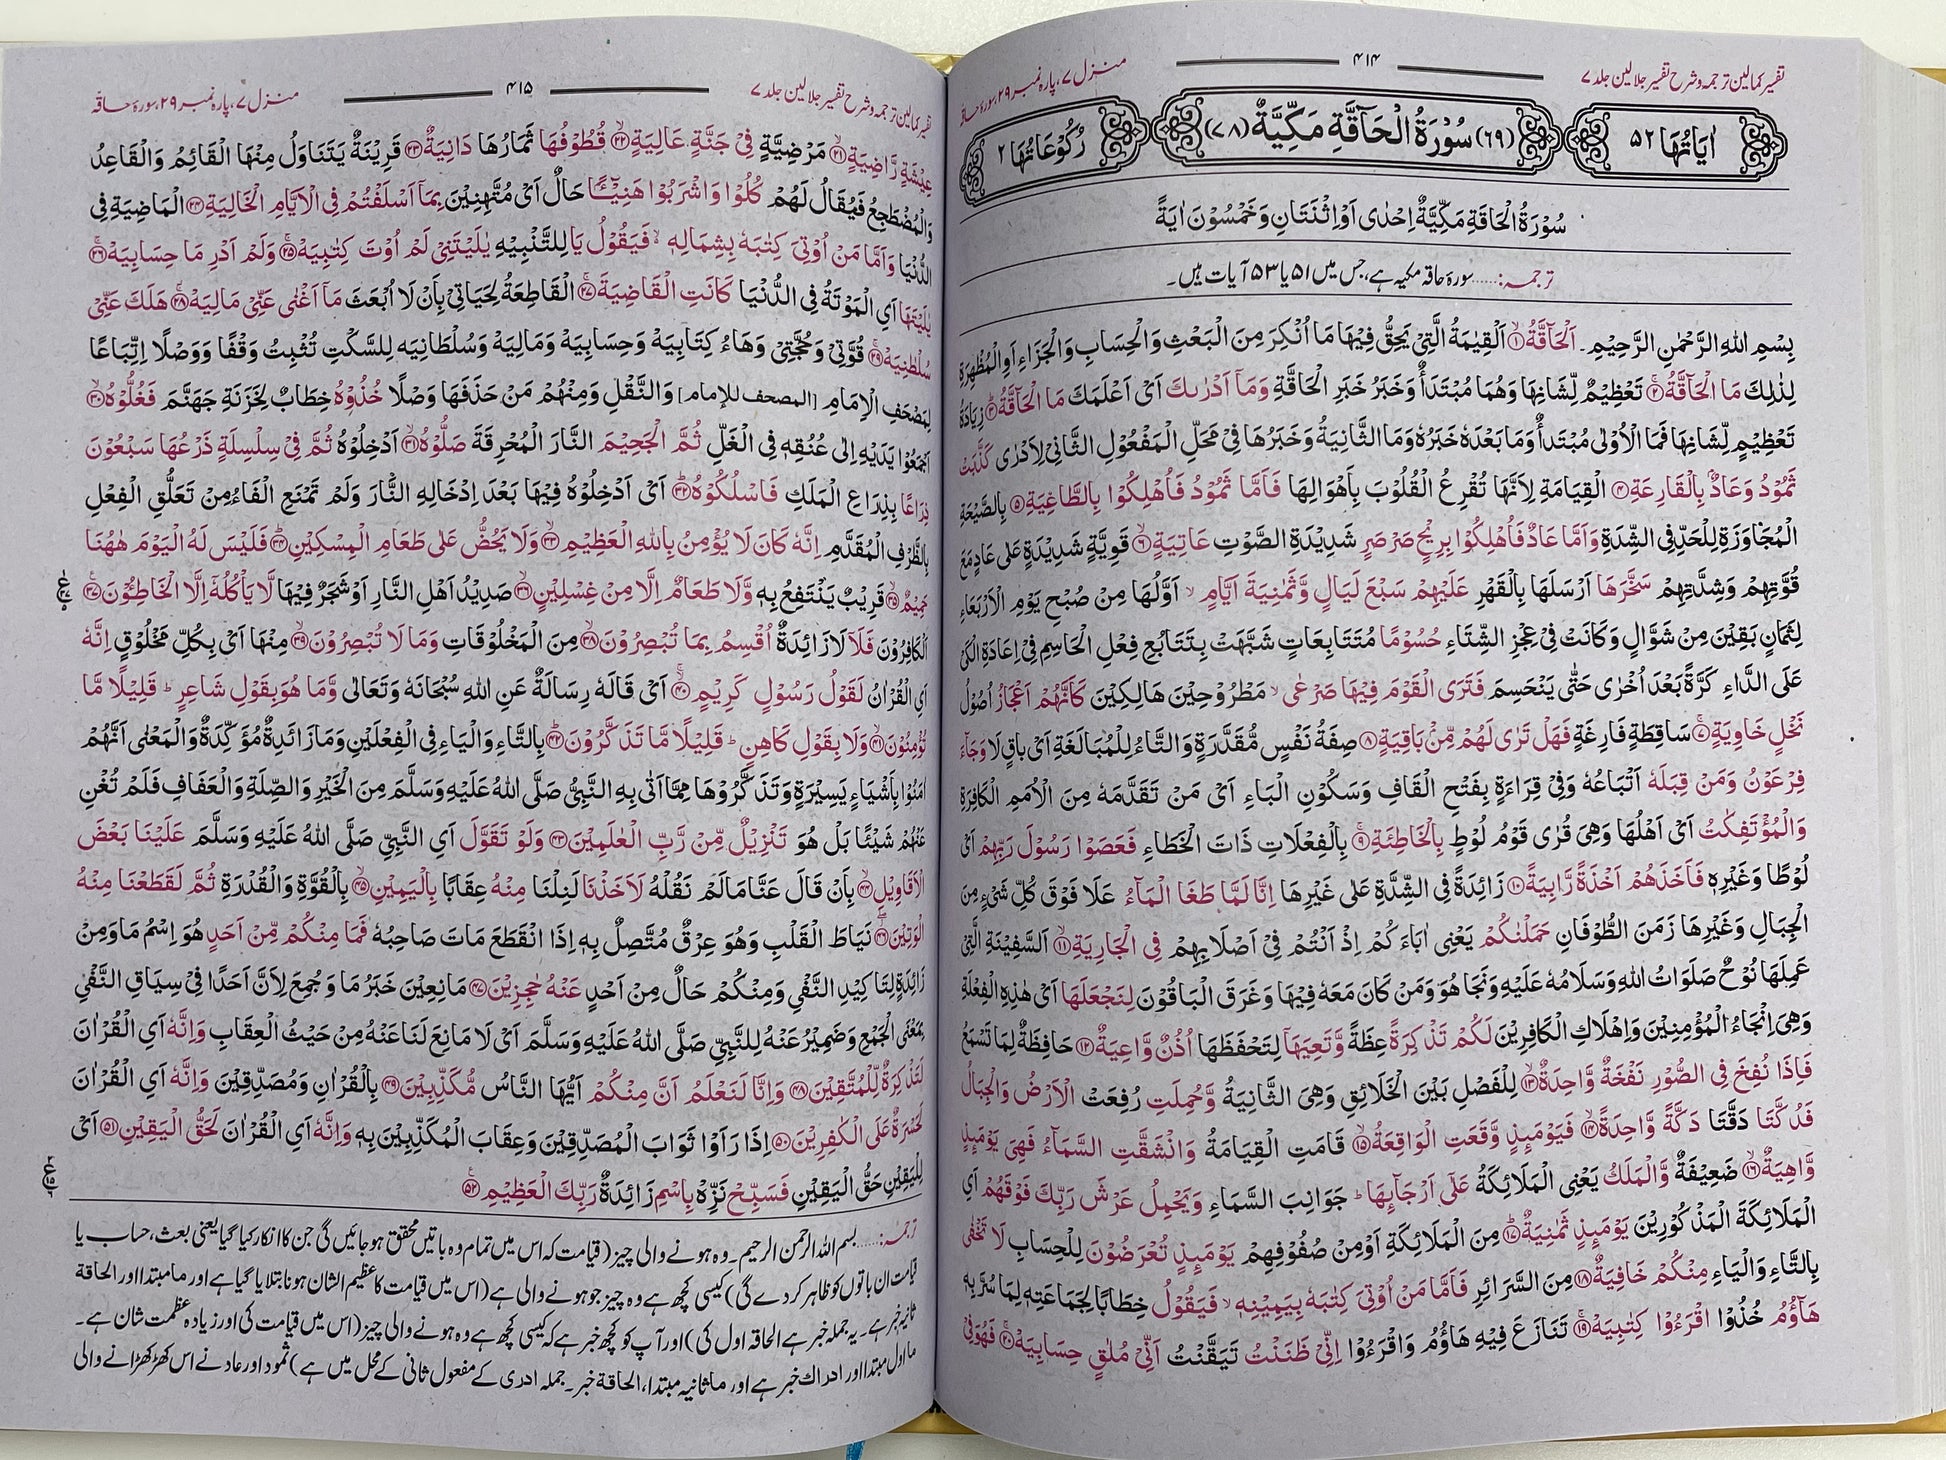 تفسیر کمالین ترجمہ و شرح تفسیر جلالین جلد ۷
۴۱۴
منزل ۷، پارہ نمبر ۲۹، سورۃ حاقہ
اٰیَاتُهَا ۵۲
(۶۹) سُوْرَةُ الْحَآقَّةِ مَكِّيَّةٌ (۷۸)
رُكُوْعَاتُهَا ۲
سُوْرَةُ الْحَاقَةِ مَكِّيَّةٌ اِحْدٰى اَوْ اِثْنَتَانِ وَخَمْسُوْنَ اٰيَةً
ترجمہ:......سورۃ حاقہ مکیہ ہے، جس میں ۵۱ یا ۵۳ آیات ہیں۔
بِسْمِ اللهِ الرَّحْمٰنِ الرَّحِيْمِ۔ اَلْحَآقَّةُ ۝۱ اَلْقِيٰمَةُ الَّتِيْ يَحِقُّ فِيْهَا مَا اُنْكِرَ مِنَ الْبَعْثِ وَالْحِسَابِ وَالْجَزَاءِ اَوِ الْمُظْهِرَةِ
لِذٰلِكَ مَا الْحَآقَّةُ ۝۲ تَعْظِيْمٌ لِّشَانِهَا وَهُمَا مُبْتَدَأٌ وَخَبَرٌ خَبَرُ الْحَاقَّةِ وَمَآ اَدْرٰىكَ اَىْ اَعْلَمَكَ مَا الْحَآقَّةُ ۝۳ زِيَادَةُ
تَعْظِيْمٍ لِّشَانِهَا فَمَا الْاُوْلٰى مُبْتَدَأٌ وَمَا بَعْدَهٗ خَبَرُهٗ وَمَا الثَّانِيَةُ وَخَبَرُهَا فِيْ مَحَلِّ الْمَفْعُوْلِ الثَّانِيْ لِاَدْرٰى كَذَّبَتْ
ثَمُوْدُ وَعَادٌۢ بِالْقَارِعَةِ ۝۴ الْقِيَامَةِ لِاَنَّهَا تُقْرِعُ الْقُلُوْبَ بِاَهْوَالِهَا فَاَمَّا ثَمُوْدُ فَاُهْلِكُوْا بِالطَّاغِيَةِ ۝۵ بِالصَّيْحَةِ
الْمُجَاوَزَةِ لِلْحَدِّ فِي الشِّدَةِ وَاَمَّا عَادٌ فَاُهْلِكُوْا بِرِيْحٍ صَرْصَرٍ شَدِيْدَةِ الصَّوْتِ عَاتِيَةٍ ۝۶ قَوِيَّةٍ شَدِيْدَةٍ عَلٰى عَادٍ مَعَ
قُوَّتِهِمْ وَشِدَّتِهِمْ سَخَّرَهَا اَرْسَلَهَا بِالْقَهْرِ عَلَيْهِمْ سَبْعَ لَيَالٍ وَّثَمٰنِيَةَ اَيَّامٍ اَوَّلُهَا مِنْ صُبْحِ يَوْمِ الْاَرْبَعَاءِ
لِثَمَانٍ بَقِيْنَ مِنْ شَوَّالٍ وَكَانَتْ فِيْ عِجْزِ الشِّتَاءِ حُسُوْمًا مُتَتَابِعَاتٍ شُبِّهَتْ بِتَتَابُعِ فِعْلِ الْحَاسِمِ فِيْ اِعَادَةِ الْكَيِّ
عَلَى الدَّاءِ كَرَّةً بَعْدَ اُخْرٰى حَتّٰى يَنْحَسِمَ فَتَرَى الْقَوْمَ فِيْهَا صَرْعٰى مَطْرُوْحِيْنَ هَالِكِيْنَ كَاَنَّهُمْ اَعْجَازُ اُصُوْلُ
نَخْلٍ خَاوِيَةٍ ۝۷ سَاقِطَةٍ فَارِغَةٍ فَهَلْ تَرٰى لَهُمْ مِّنْۢ بَاقِيَةٍ ۝۸ صِفَةُ نَفْسٍ مُّقَدَّرَةٍ وَالتَّاءُ لِلْمُبَالَغَةِ اَىْ بَاقٍ لَا وَجَآءَ
فِرْعَوْنُ وَمَنْ قِبَلَهٗ اَتْبَاعُهٗ وَفِيْ قِرَاءَةٍ بِفَتْحِ الْقَافِ وَسَكُوْنِ الْبَاءِ اَىْ مَنْ تَقَدَّمَهٗ مِنَ الْاُمَمِ الْكَافِرَةِ
وَالْمُؤْتَفِكٰتُ اَىْ اَهْلُهَا وَهِىَ قُرٰى قَوْمِ لُوْطٍ بِالْخَاطِئَةِ ۝۹ بِالْفِعْلَاتِ ذَاتَ الْخَطَاءِ فَعَصَوْا رَسُوْلَ رَبِّهِمْ اَىْ
لُوْطًا وَغَيْرِهٖ فَاَخَذَهُمْ اَخْذَةً رَّابِيَةً ۝۱۰ زَائِدَةً فِي الشِّدَّةِ عَلٰى غَيْرِهَا اِنَّا لَمَّا طَغَا الْمَآءُ عَلَا فَوْقَ كُلِّ شَيْءٍ مِنَ
الْجِبَالِ وَغَيْرِهَا زَمَنَ الطُّوْفَانِ حَمَلْنٰكُمْ يَعْنِى اٰبَاءَكُمْ اِذْ اَنْتُمْ فِيْ اَصْلَابِهِمْ فِي الْجَارِيَةِ ۝۱۱ اَلسَّفِيْنَةِ الَّتِيْ
عَمِلَهَا نُوْحٌ صَلَوَاتُ اللهِ وَسَلَامُهٗ عَلَيْهِ وَنَجَا هُوَ وَمَنْ كَانَ مَعَهٗ فِيْهَا وَغَرَقَ الْبَاقُوْنَ لِنَجْعَلَهَا اَىْ هٰذِهِ الْفِعْلَةِ
وَهِىَ اِنْجَاءُ الْمُؤْمِنِيْنَ وَاِهْلَاكِ الْكَافِرِيْنَ لَكُمْ تَذْكِرَةً عِظَةً وَّتَعِيَهَآ لِتَحْفَظَهَا اُذُنٌ وَّاعِيَةٌ ۝۱۲ حَافِظَةٌ لِمَا تَسْمَعُ
فَاِذَا نُفِخَ فِي الصُّوْرِ نَفْخَةٌ وَّاحِدَةٌ ۝۱۳ لِلْفَصْلِ بَيْنَ الْخَلَائِقِ وَهِىَ الثَّانِيَةُ وَّحُمِلَتِ رُفِعَتْ الْاَرْضُ وَالْجِبَالُ
فَدُكَّتَا دَقَّتَا دَكَّةً وَّاحِدَةً ۝۱۴ فَيَوْمَئِذٍ وَّقَعَتِ الْوَاقِعَةُ ۝۱۵ قَامَتِ الْقِيَامَةُ وَانْشَقَّتِ السَّمَآءُ فَهِىَ يَوْمَئِذٍ
وَّاهِيَةٌ ۝۱۶ ضَعِيْفَةٌ وَّالْمَلَكُ يَعْنِى الْمَلَائِكَةُ عَلٰٓى اَرْجَآئِهَا جَوَانِبَ السَّمَاءِ وَيَحْمِلُ عَرْشَ رَبِّكَ فَوْقَهُمْ اَىِ
الْمَلَائِكَةَ الْمَذْكُوْرِيْنَ يَوْمَئِذٍ ثَمٰنِيَةٌ ۝۱۷ مِنَ الْمَلَائِكَةِ اَوْ مِنْ صُفُوْفِهِمْ يَوْمَئِذٍ تُعْرَضُوْنَ لِلْحِسَابِ لَا تَخْفٰى
بِالتَّاءِ وَالْيَاءِ مِنْكُمْ خَافِيَةٌ ۝۱۸ مِنَ السَّرَائِرِ فَاَمَّا مَنْ اُوْتِىَ كِتٰبَهٗ بِيَمِيْنِهٖ فَيَقُوْلُ خِطَابًا لِجَمَاعَتِهٖ لِمَا سُرَّ بِهٖ
هَآؤُمُ خُذُوْا اقْرَءُوْا كِتٰبِيَهْ ۝۱۹ تَنَازَعَ فِيْهِ هَاؤُمُ وَاقْرَءُوْا اِنِّىْ ظَنَنْتُ تَيَقَّنْتُ اَنِّىْ مُلٰقٍ حِسَابِيَهْ ۝۲۰ فَهُوَ فِىْ
تفسیر کمالین ترجمہ و شرح تفسیر جلالین جلد ۷
۴۱۵
منزل ۷، پارہ نمبر ۲۹، سورۃ حاقہ
عِيْشَةٍ رَّاضِيَةٍ ۝۲۱ مَرْضِيَّةٍ فِىْ جَنَّةٍ عَالِيَةٍ ۝۲۲ قُطُوْفُهَا ثَمَارُهَا دَانِيَةٌ ۝۲۳ قَرِيْبَةٌ يَتَنَاوَلُ مِنْهَا الْقَائِمُ وَالْقَاعِدُ
وَالْمُضْطَجِعُ فَيُقَالُ لَهُمْ كُلُوْا وَاشْرَبُوْا هَنِيْٓـًٔۢا حَالٌ اَىْ مُتَّهِنِيْنَ بِمَآ اَسْلَفْتُمْ فِى الْاَيَّامِ الْخَالِيَةِ ۝۲۴ الْمَاضِيَةِ فِى
الدُّنْيَا وَاَمَّا مَنْ اُوْتِىَ كِتٰبَهٗ بِشِمَالِهٖ فَيَقُوْلُ يَا لِلتَّنْبِيْهِ يٰلَيْتَنِىْ لَمْ اُوْتَ كِتٰبِيَهْ ۝۲۵ وَلَمْ اَدْرِ مَا حِسَابِيَهْ ۝۲۶
يٰلَيْتَهَا اَىِ الْمَوْتَةُ فِى الدُّنْيَا كَانَتِ الْقَاضِيَةَ ۝۲۷ الْقَاطِعَةُ لِحَيَاتِىْ بِاَنْ لَا اُبْعَثَ مَآ اَغْنٰى عَنِّىْ مَالِيَهْ ۝۲۸ هَلَكَ عَنِّىْ
سُلْطٰنِيَهْ ۝۲۹ قُوَّتِىْ وَحُجَّتِىْ وَهَاءُ كِتَابِيَهْ وَحِسَابِيَهْ وَمَالِيَهْ وَسُلْطَانِيَه لِلسَّكْتِ تُثْبِتُ وَقْفًا وَوَصْلًا اِتِّبَاعًا
لِمَصْحَفِ الْاِمَامِ [المصحف للإمام] وَالنَّقْلِ وَمِنْهُمْ مَنْ حَذَفَهَا وَصْلًا خُذُوْهُ خِطَابٌ لِخَزَنَةِ جَهَنَّمَ فَغُلُّوْهُ ۝۳۰
اَجْمِعُوْا يَدَيْهِ اِلٰى عُنُقِهٖ فِى الْغَلِّ ثُمَّ الْجَحِيْمَ النَّارَ الْمُحْرِقَةَ صَلُّوْهُ ۝۳۱ اَدْخِلُوْهُ ثُمَّ فِىْ سِلْسِلَةٍ ذَرْعُهَا سَبْعُوْنَ
ذِرَاعًا بِذِرَاعِ الْمَلَكِ فَاسْلُكُوْهُ ۝۳۲ اَىْ اَدْخِلُوْهُ فِيْهَا بَعْدَ اِدْخَالِهِ النَّارَ وَلَمْ تَمْنَعِ الْفَاءُ مِنْ تَعَلُّقِ الْفِعْلِ
بِالظَّرْفِ الْمُقَدَّمِ اِنَّهٗ كَانَ لَا يُؤْمِنُ بِاللهِ الْعَظِيْمِ ۝۳۳ وَلَا يَحُضُّ عَلٰى طَعَامِ الْمِسْكِيْنِ ۝۳۴ فَلَيْسَ لَهُ الْيَوْمَ هٰهُنَا
حَمِيْمٌ ۝۳۵ قَرِيْبٌ يَنْتَفِعُ بِهٖ وَّلَا طَعَامٌ اِلَّا مِنْ غِسْلِيْنٍ ۝۳۶ صَدِيْدُ اَهْلِ النَّارِ اَوْ شَجَرٌ فِيْهَا لَّا يَاْكُلُهٗ اِلَّا الْخَاطِئُوْنَ ۝۳۷
اَلْكَافِرُوْنَ فَلَآ لَا زَائِدَةٌ اُقْسِمُ بِمَا تُبْصِرُوْنَ ۝۳۸ مِنَ الْمَخْلُوْقَاتِ وَمَا لَا تُبْصِرُوْنَ ۝۳۹ مِنْهَا اَىْ بِكُلِّ مَخْلُوْقٍ اِنَّهٗ
اَىِ الْقُرْاٰنُ لَقَوْلُ رَسُوْلٍ كَرِيْمٍ ۝۴۰ اَىْ قَالَهٗ رِسَالَةً عَنِ اللهِ سُبْحَانَهٗ وَتَعَالٰى وَّمَا هُوَ بِقَوْلِ شَاعِرٍ قَلِيْلًا مَّا
تُؤْمِنُوْنَ ۝۴۱ وَلَا بِقَوْلِ كَاهِنٍ قَلِيْلًا مَّا تَذَكَّرُوْنَ ۝۴۲ بِالتَّاءِ وَالْيَاءِ فِى الْفِعْلَيْنِ وَمَا زَائِدَةٌ مُؤَكِّدَةٌ وَالْمَعْنٰى اَنَّهُمْ
اٰمَنُوْا بِاَشْيَاءٍ يَسِيْرَةٍ وَتَذَكَّرُوْهَا مِمَّا اَتٰى بِهِ النَّبِىُّ صَلَّى اللهُ عَلَيْهِ وَسَلَّمَ مِنَ الْخَيْرِ وَالصِّلَةِ وَالْعَفَافِ فَلَمْ تُغْنِ
عَنْهُمْ شَيْئًا بَلْ هُوَ تَنْزِيْلٌ مِّنْ رَّبِّ الْعٰلَمِيْنَ ۝۴۳ وَلَوْ تَقَوَّلَ اَىِ النَّبِىِّ صَلَّى اللهُ عَلَيْهِ وَسَلَّمَ عَلَيْنَا بَعْضَ
الْاَقَاوِيْلِ ۝۴۴ بِاَنْ قَالَ عَنَّا مَا لَمْ نَقُلْهُ لَاَخَذْنَا لَنِلْنَا مِنْهُ عِقَابًا بِالْيَمِيْنِ ۝۴۵ بِالْقُوَّةِ وَالْقُدْرَةِ ثُمَّ لَقَطَعْنَا مِنْهُ
الْوَتِيْنَ ۝۴۶ نِيَاطَ الْقَلْبِ وَهُوَ عِرْقٌ مُتَّصِلٌ بِهٖ اِذَا انْقَطَعَ مَاتَ صَاحِبُهٗ فَمَا مِنْكُمْ مِّنْ اَحَدٍ هُوَ اِسْمُ مَا وَمِنْ
زَائِدَةٍ لِتَاكِيْدِ النَّفْىِ وَمِنْكُمْ حَالٌ مِنْ اَحَدٍ عَنْهُ حٰجِزِيْنَ ۝۴۷ مَانِعِيْنَ خَبَرُ مَا وَجُمِعَ لِاَنَّ اَحَدًا فِىْ سِيَاقِ النَّفْىِ
بِمَعْنَى الْجَمْعِ وَضَمِيْرُ عَنْهُ لِلنَّبِىِّ صَلَّى اللهُ عَلَيْهِ وَسَلَّمَ اَىْ لَا مَانِعَ لَنَا عَنْهُ مِنْ حَيْثُ الْعِقَابِ وَاِنَّهٗ اَىِ الْقُرْاٰنَ
لَتَذْكِرَةٌ لِّلْمُتَّقِيْنَ ۝۴۸ وَاِنَّا لَنَعْلَمُ اَنَّ مِنْكُمْ اَيُّهَا النَّاسُ مُّكَذِّبِيْنَ ۝۴۹ بِالْقُرْاٰنِ وَمُصَدِّقِيْنَ وَاِنَّهٗ اَىِ الْقُرْاٰنَ
لَحَسْرَةٌ عَلَى الْكٰفِرِيْنَ ۝۵۰ اِذَا رَاَوْا ثَوَابَ الْمُصَدِّقِيْنَ وَعِقَابَ الْمُكَذِّبِيْنَ بِهٖ وَاِنَّهٗ اَىِ الْقُرْاٰنَ لَحَقُّ الْيَقِيْنِ ۝۵۱ اَىْ
لِلْيَقِيْنِ حَقُّ الْيَقِيْنِ فَسَبِّحْ نَزِّهْ بِاسْمِ زَائِدَةٌ رَبِّكَ الْعَظِيْمِ ۝۵۲
ترجمہ:......بسم اللہ الرحمن الرحیم۔ وہ ہونے والی چیز (قیامت کہ اس میں تمام وہ باتیں محقق ہو جائیں گی جن کا انکار کیا گیا یعنی بعث، حساب یا
قیامت ان باتوں کو ظاہر کر دے گی) کیسی کچھ ہے وہ چیز جو ہونے والی ہے (اس میں قیامت کا عظیم الشان ہونا بتلایا گیا ہے اور ما مبتدا اور الحاقۃ
ثانیہ خبر ہے۔ یہ جملہ خبر ہے الحاقہ اول کی) اور آپ کو کچھ خبر ہے کہ کیسی کچھ ہے وہ ہونے والی چیز (اس میں قیامت کی اور زیادہ عظمت شان ہے۔
ما اول مبتدا اور ادراک خبر ہے اور ما ثانیہ مبتدا، الحاقۃ خبر۔ جملہ ادری کے مفعول ثانی کے محل میں ہے) ثمود اور عاد نے اس کھڑکھڑانے والی